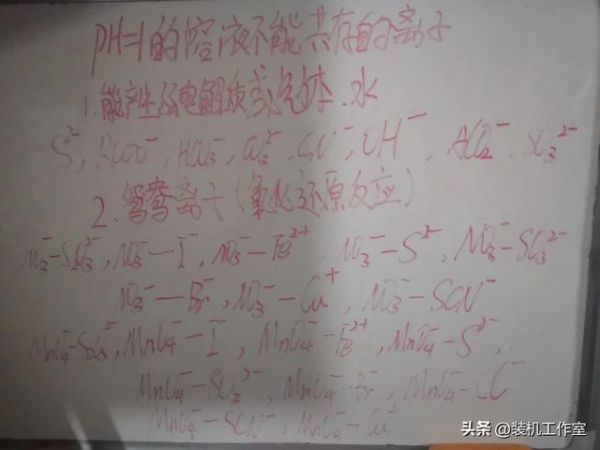 PH=1的溶液不能共存的离子
1.能产生弱电解质或气体.水
S²⁻, RCOO⁻, HCO₃⁻, CO₃²⁻, CN⁻, OH⁻, AlO₂⁻, SO₃²⁻
2.鸳鸯离子(氧化还原反应)
NO₃⁻—S₂O₃²⁻, NO₃⁻—I⁻, NO₃⁻—Fe²⁺, NO₃⁻—S²⁻, NO₃⁻—SO₃²⁻
NO₃⁻—Br⁻, NO₃⁻—Cu⁺, NO₃⁻—SCN⁻
MnO₄⁻—S₂O₃²⁻, MnO₄⁻—I⁻, MnO₄⁻—Fe²⁺, MnO₄⁻—S²⁻,
MnO₄⁻—SO₃²⁻, MnO₄⁻—Br⁻, MnO₄⁻—Cl⁻
MnO₄⁻—SCN⁻, MnO₄⁻—Cu⁺
头条 @装机工作室